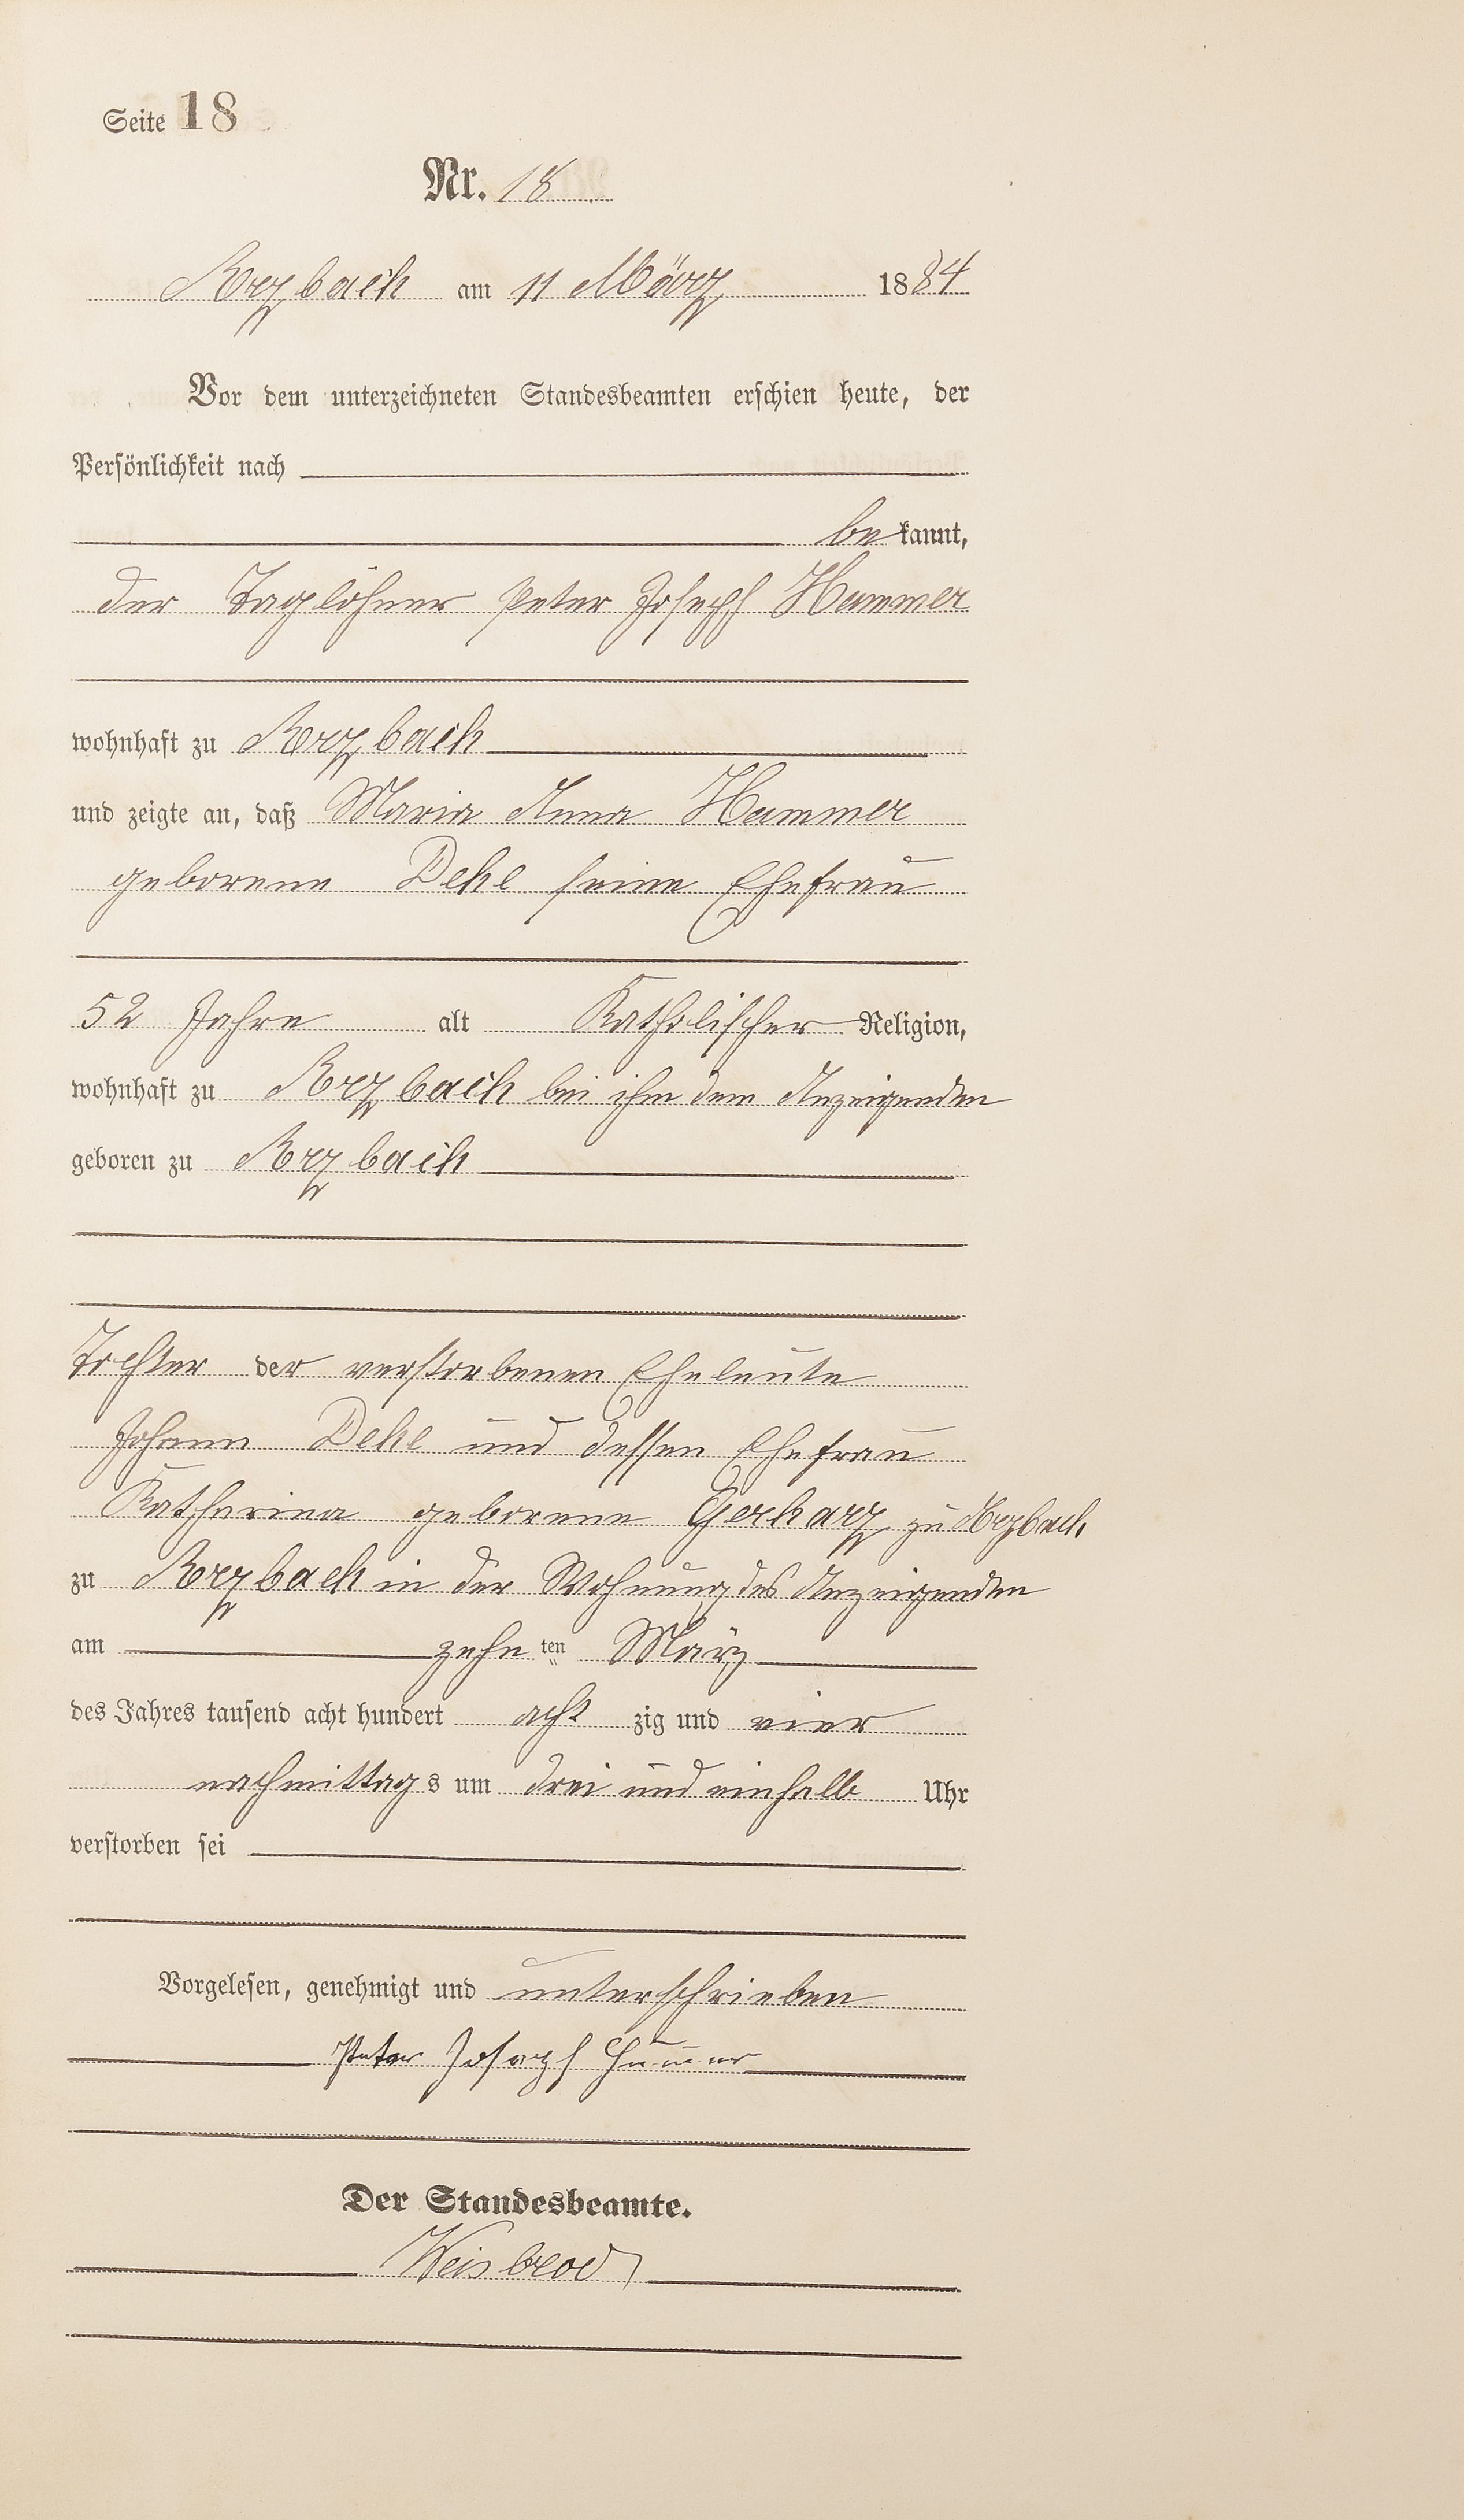 Seite 18
Nr. 18
Arzbach am 11 März 1884
Vor dem unterzeichneten Standesbeamten erschien heute, der
Persönlichkeit nach
bekannt,
der Taglöhner Peter Joseph Hammer
wohnhaft zu Arzbach
und zeigte an, daß Maria Anna Hammer
geborene Dehe seine Ehefrau
52 Jahre alt Katholischer Religion,
wohnhaft zu Arzbach bei ihm dem Anzeigenden
geboren zu Arzbach
Tochter der verstorbenen Eheleute
Johann Dehe und dessen Ehefrau
Katharina geborene Gerharz zu Arzbach
zu Arzbach in der Wohnung des Anzeigenden
am zehn ten März
des Jahres tausend acht hundert acht zig und vier
nachmittags um drei und einhalb Uhr
verstorben sei
Vorgelesen, genehmigt und unterschrieben
Peter Joseph Hammer
Der Standesbeamte.
Weisbrod